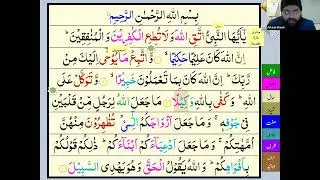 بِسْمِ اللّٰهِ الرَّحْمٰنِ الرَّحِيْمِ
يٰۤاَيُّهَا النَّبِىُّ اتَّقِ اللّٰهَ وَلَا تُطِعِ الْكٰفِرِيْنَ وَ الْمُنٰفِقِيْنَ ؕ
اِنَّ اللّٰهَ كَانَ عَلِيْمًا حَكِيْمًا ۙ وَّ اتَّبِعْ مَا يُوْحٰۤى اِلَيْكَ مِنْ
رَّبِّكَ ؕ اِنَّ اللّٰهَ كَانَ بِمَا تَعْمَلُوْنَ خَبِيْرًا ۙ وَّ تَوَكَّلْ عَلَى
اللّٰهِ ؕ وَ كَفٰى بِاللّٰهِ وَكِيْلًا مَا جَعَلَ اللّٰهُ لِرَجُلٍ مِّنْ قَلْبَيْنِ
فِىْ جَوْفِهٖ ۚ وَ مَا جَعَلَ اَزْوَاجَكُمُ الّٰٓـِٔىْ تُظٰهِرُوْنَ مِنْهُنَّ
اُمَّهٰتِكُمْ ۚ وَ مَا جَعَلَ اَدْعِيَآءَكُمْ اَبْنَآءَكُمْ ؕ ذٰلِكُمْ قَوْلُكُمْ
بِاَفْوَاهِكُمْ ؕ وَ اللّٰهُ يَقُوْلُ الْحَقَّ وَ هُوَ يَهْدِى السَّبِيْلَ